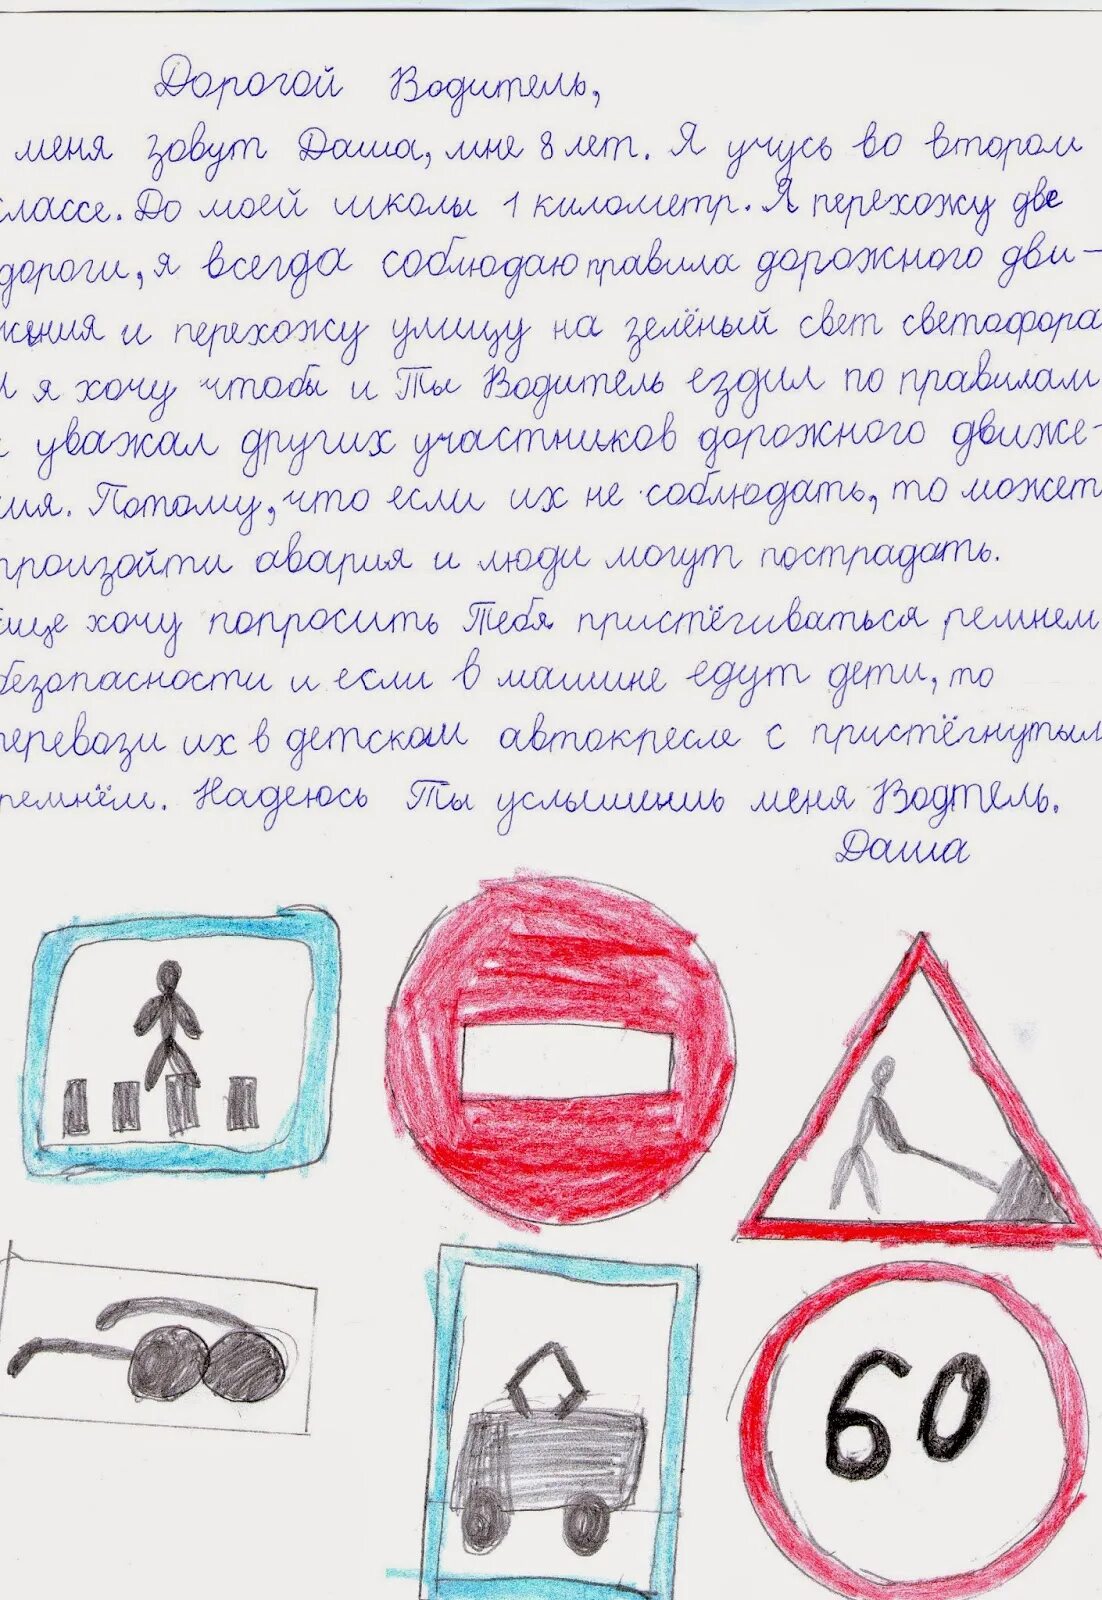 Дорогой Водитель,
меня зовут Даша, мне 8 лет. Я учусь во втором
классе. До моей школы 1 километр. Я перехожу две
дороги, я всегда соблюдаю правила дорожного дви-
жения и перехожу улицу на зелёный свет светофора
И я хочу чтобы и Ты Водитель ездил по правилам
и уважал других участников дорожного движе-
ния. Потому, что если их не соблюдать, то может
произойти авария и люди могут пострадать.
Еще хочу попросить Тебя пристёгиваться ремнем
безопасности и если в машине едут дети, то
перевози их в детском автокресле с пристёгнутым
ремнём. Надеюсь Ты услышишь меня Водтель.
Даша
60